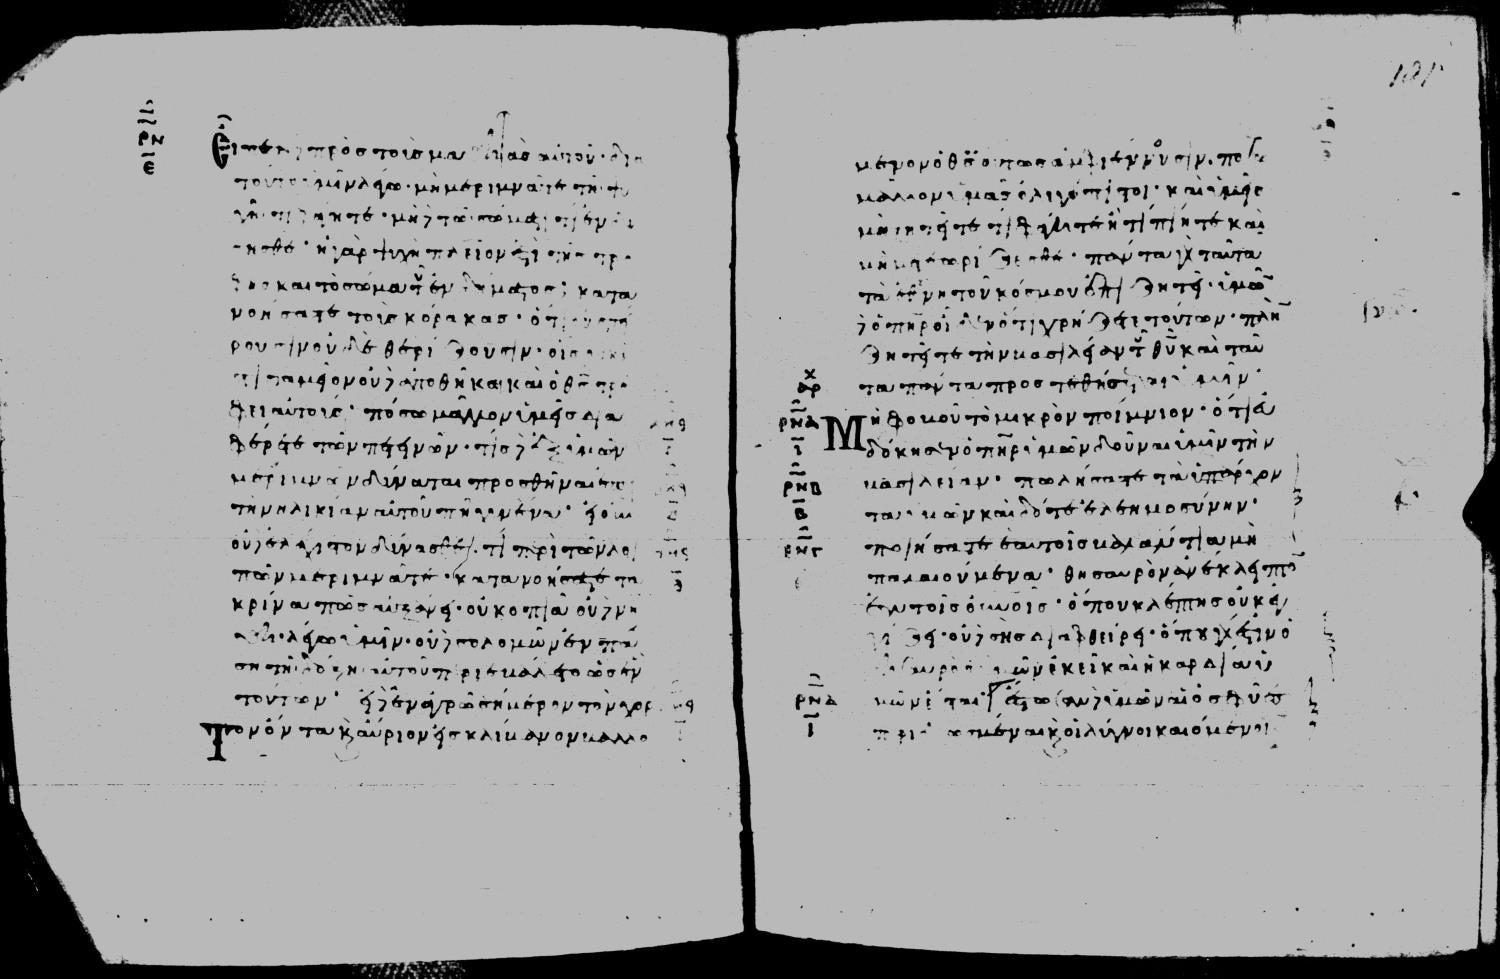 πρὸς τοὺς μα αὐτοῦ· δια
τοῦτο ὑμῖν λέγω· μὴ μεριμνᾶτε τῇ ψυ
χῇ τί φάγητε· μηδὲ τῶ σώματι τί ἐνδυ
σησθε· ἡ γὰρ ψυχὴ πλεῖόν ἐστι τῆς τρο
φης καὶ τὸ σῶμα τοῦ ἐνδύματος; κατα
νοήσατε τοὺς κόρακας· ὅτι οὐ σπεί
ρουσιν οὐδὲ θερίζουσιν· οἷς οὐκ
ταμεῖον οὐδὲ ἀποθήκη καὶ ὁ θς τρε
φει αὐτούς· πόσω μᾶλλον ὑμεῖς δια
φέρετε τῶν πετεινῶν· τίς δὲ ἐξ ὑμῶν
μεριμνῶν δύναται προσθῆναι ἐπι
τὴν ἡλικίαν αὐτοῦ πῆχυν ἕνα· εἰ οὖν
οὐδὲ ἐλάχιστον δύνασθε· τί περὶ τῶν λοι
πῶν μεριμνᾶτε· κατανοήσατε τα
κρίνα πῶς αὐξάνει· οὐ κοπιᾶ οὐδὲ νη
θει· λέγω ὑμῖν· οὐδὲ σολομῶν ἐν πά
ση τῇ δόξῃ αὐτοῦ περιεβάλετο ὡς ἓν
τούτων· εἰ δὲ ἐν ἀγρῶ σήμερον τὸν χόρ
τον ὄντα κ αὔριον εἰς κλίβανον βαλλό
μενον ὁ θς οὕτως ἀμφιέννυσιν· πόσω
μᾶλλον ὑμᾶς ὀλιγόπιστοι· καὶ ὑμεῖς
μὴ ζητεῖτε τί φάγητε ἢ τί πίητε καὶ
μὴ μετεωρίζεσθε· πάντα γὰρ ταῦτα
τὰ ἔθνη τοῦ κόσμου ἐπιζητεῖ· ὑμῶν
δὲ ὁ πηρ οἶδεν ὅτι χρήζετε τούτων· πλὴν
ζητεῖτε τὴν βασιλείαν τοῦ θυ καὶ ταῦ
τα πάντα προστεθήσεται ὑμῖν·
Μὴ φοβοῦ τὸ μικρὸν ποίμνιον· ὅτι εὐ
δόκησεν ὁ πηρ ὑμῶν δοῦναι ὑμῖν τὴν
βασιλείαν· πωλήσατε τὰ ὑπάρχον
τα ὑμῶν καὶ δότε ἐλεημοσύνην·
ποιήσατε ἑαυτοῖς βαλάντια μὴ
παλαιούμενα· θησαυρὸν ἀνέκλειπτον
ἐν τοῖς οὐνοῖς· ὅπου κλέπτης οὐκ ἐγ
γίζει· οὐδὲ σὴς διαφθείρει· ὅπου γάρ ἐστιν ὁ
θησαυρὸς ὑμῶν ἐκεῖ καὶ ἡ καρδία ὑ
μῶν ἔσται· ἔστωσαν ὑμῶν αἱ ὀσφύες
περιεζωσμέναι κ οἱ λύχνοι καιόμενοι
ρνα
ι
ρνβ
β
ρνγ
ρνδ
ι